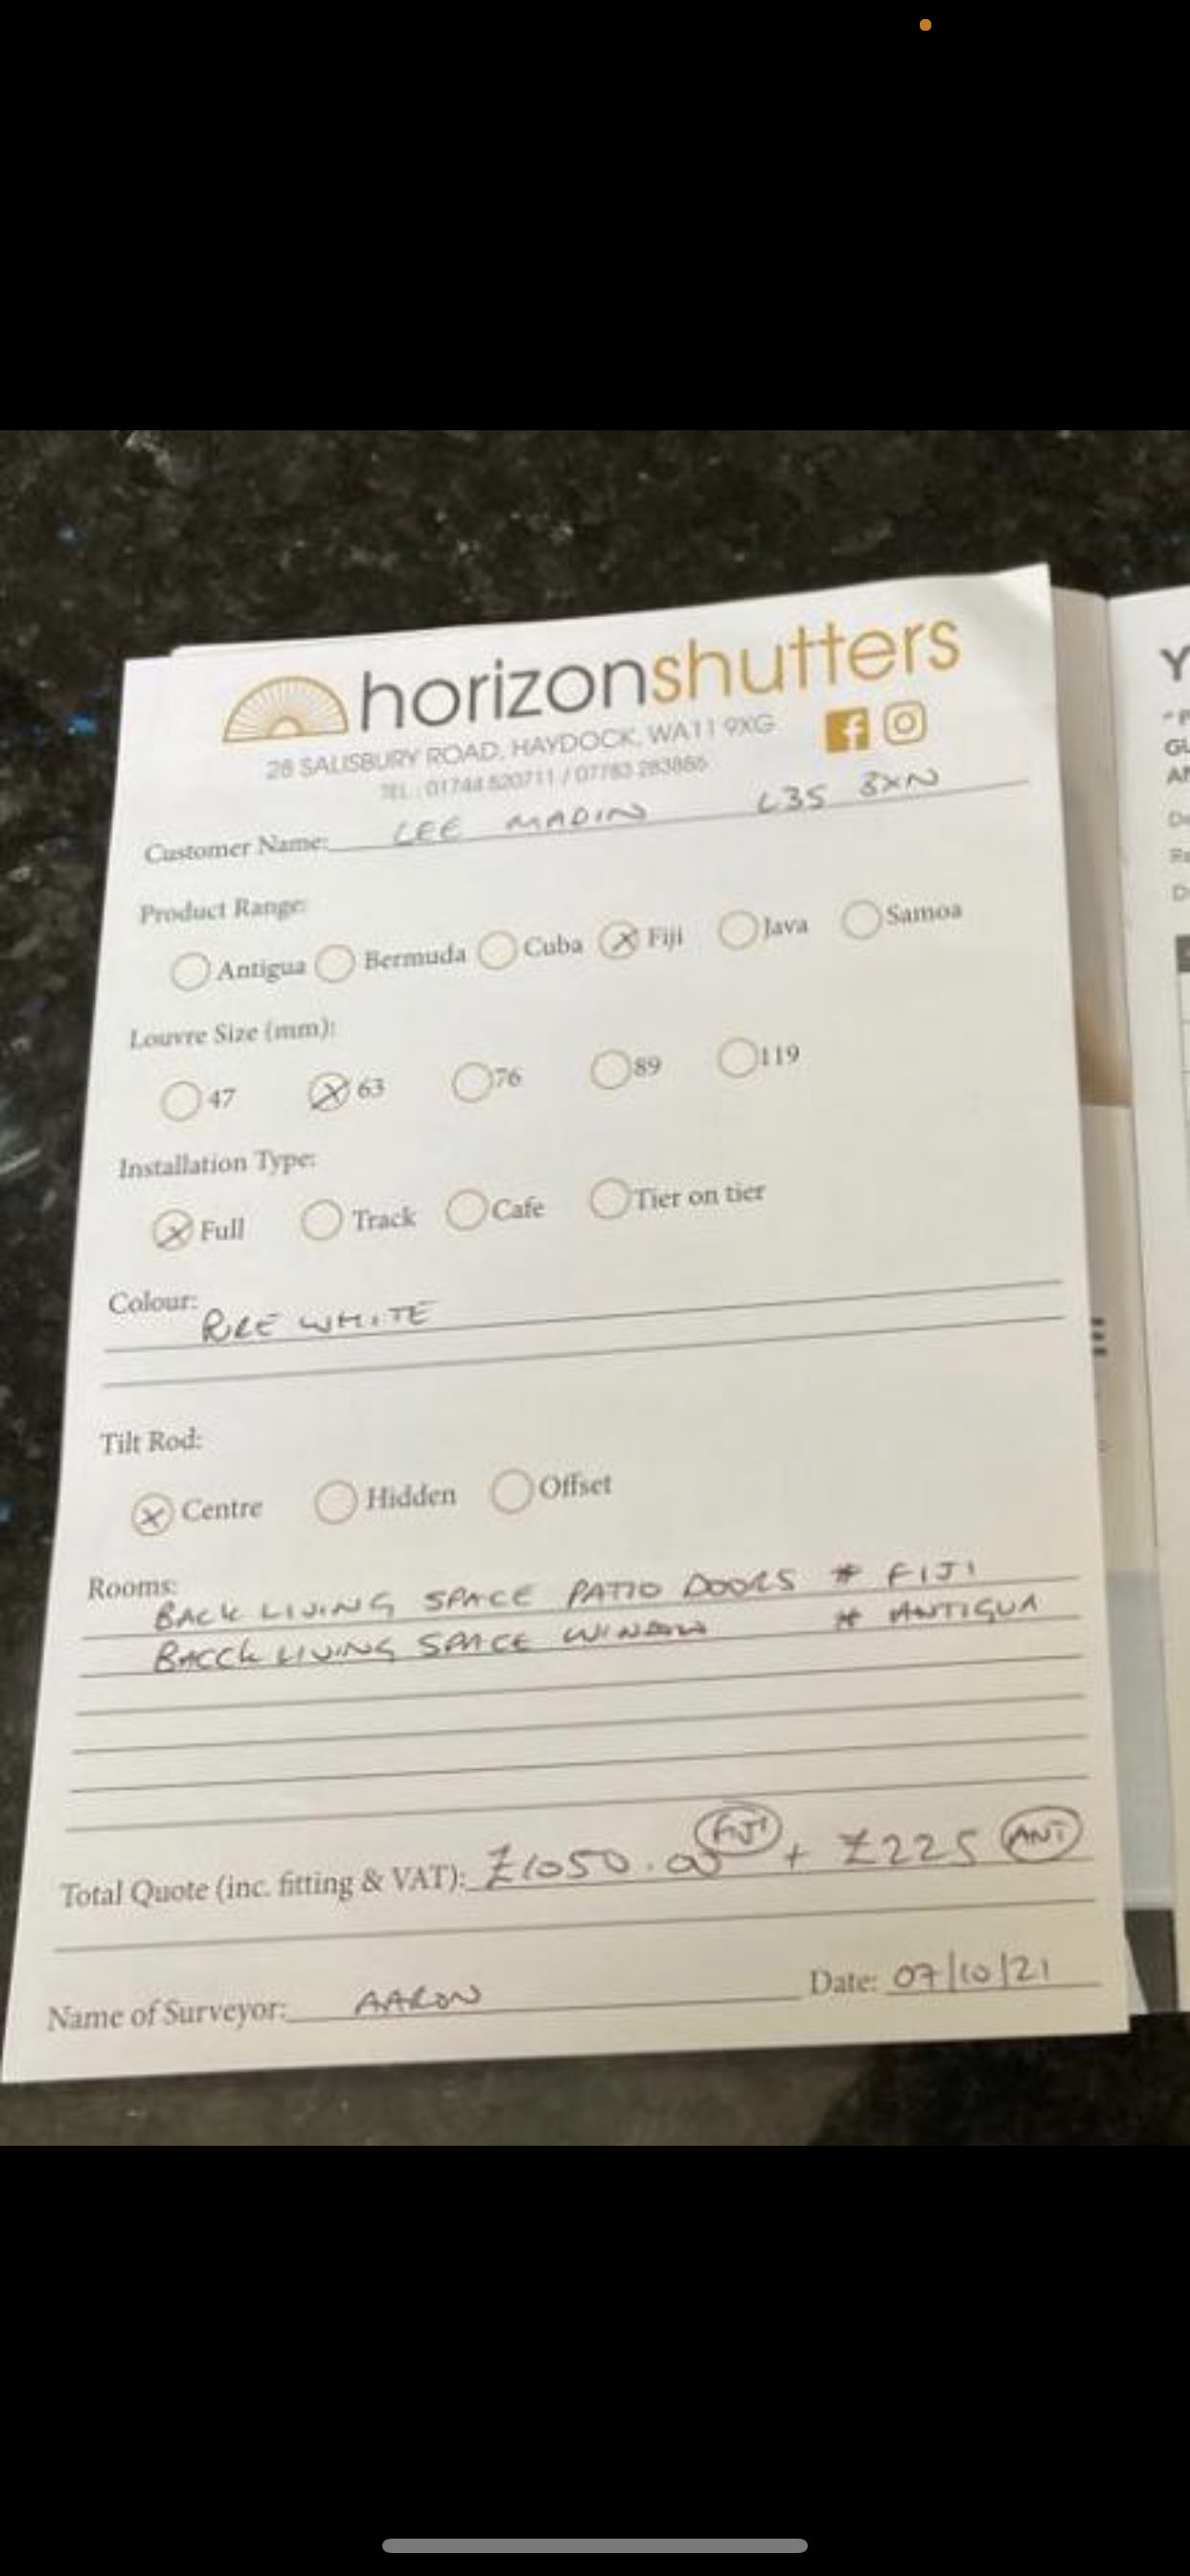 horizonshutters
28 SALISBURY ROAD, HAYDOCK, WA11 9XG
TEL: 01744 520711 / 07783 283865
Customer Name: LEE MADIN L35 3XN
Product Range:
Antigua Bermuda Cuba Fiji Java Samoa
Louvre Size (mm):
47 63 76 89 119
Installation Type:
Full Track Cafe Tier on tier
Colour: PURE WHITE
Tilt Rod:
Centre Hidden Offset
Rooms:
BACK LIVING SPACE PATIO DOORS * FIJI
BACCK LIVING SPACE WINDOW * ANTIGUA
Total Quote (inc. fitting & VAT): £1050.00 FIJI + £225 ANT
Name of Surveyor: AARON Date: 07/10/21